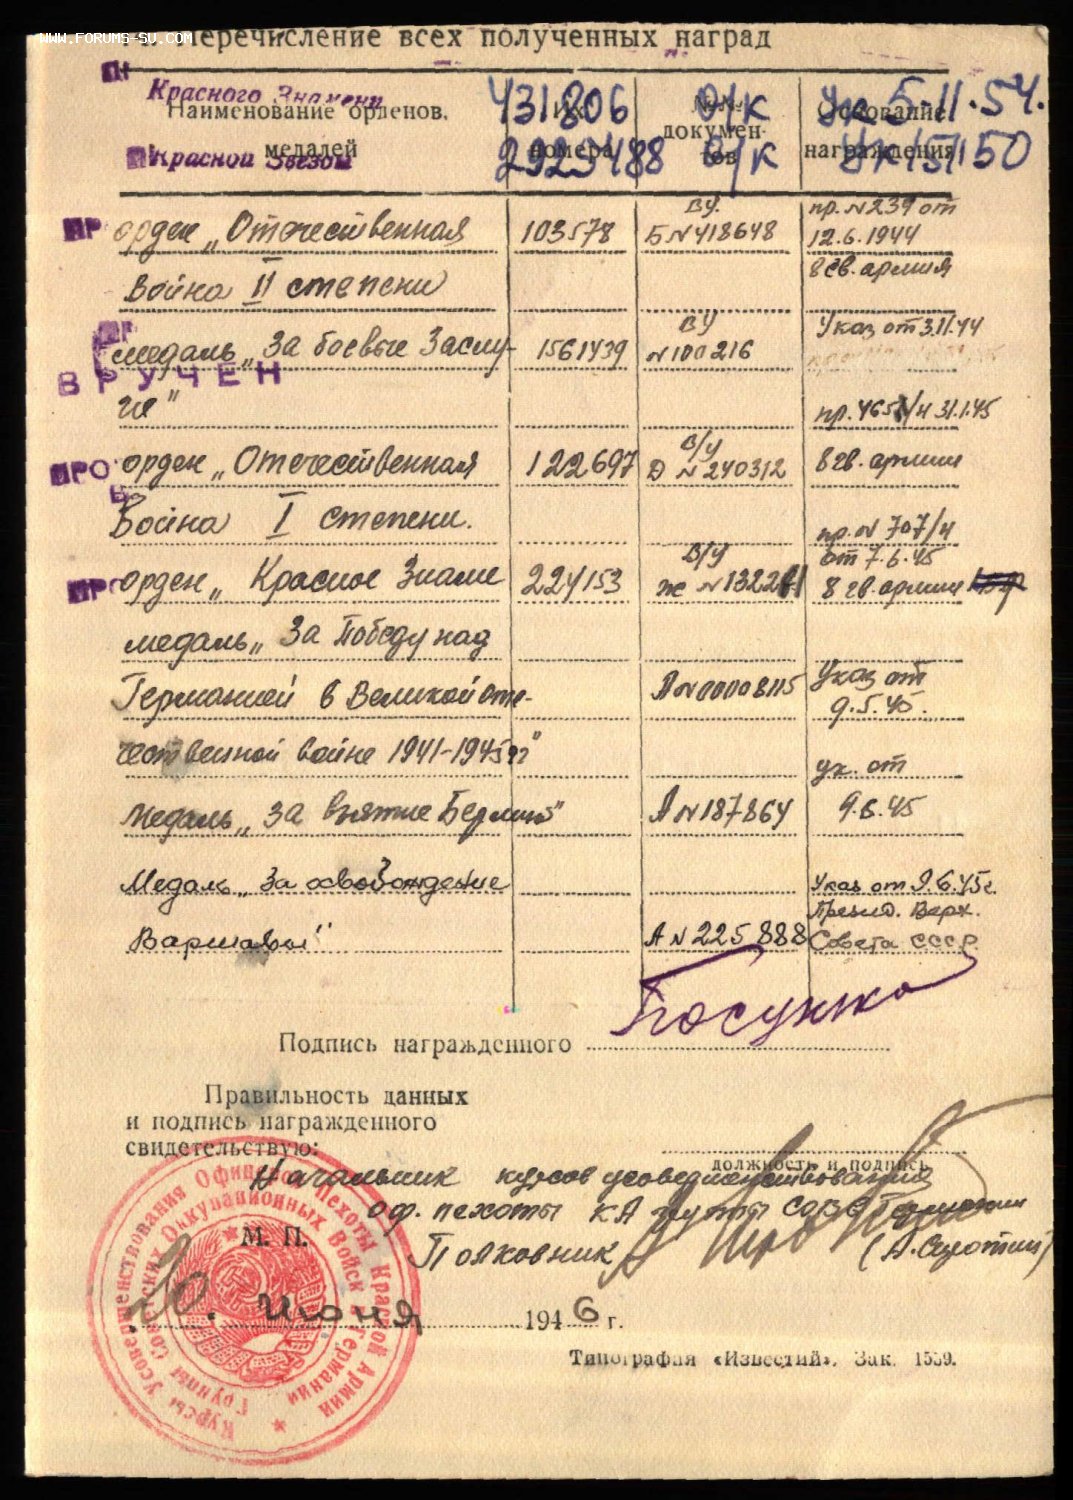 WWW.FORUMS-SU.COM
Перечисление всех полученных наград
Красного Знамени 431806 О/К Ук 5-11.54.
Наименование орденов, медалей Их номера №№ документов Основание награждения
Красной Звезды 2925488 О/К Ук 15/1150
ПР орден „Отечественная 103578 ВУ Б№418648 пр. №239 от 12.6.1944
Война II степени 8 гв. армия
медаль „За боевые Заслу- 1561439 ВУ №100216 Указ от 3.11.44
ВРУЧЕН
ги"
пр. 31.1.45
ПРО орден „Отечественная 122697 В/У Д №240312 8 гв. армии
Война I степени.
пр. № 707/н от 7.6.45
ПРО орден „Красное Знаме 224153 В/У Ж 8 гв. армии
медаль „За Победу над
Германией в Великой оте- А№0008115 Указ от 9.5.45.
чественной войне 1941-1945гг"
ук. от
Медаль „За взятие Берлина" А№187864 9.6.45
Медаль „За освобождение Указ от 9.6.45г.
Презид. Верх.
Варшавы" А№225888 Совета СССР.
Подпись награжденного
Посунько
Правильность данных
и подпись награжденного
свидетельствую:
должность и подпись
Начальник курсов усовершенствования
оф. пехоты КА группы СОВГ Германии
М. П.
Полковник
20. Июня 1946 г.
Курсы Усовершенствования Офицеров Пехоты Красной Армии
Группы Советских Оккупационных Войск в Германии
Типография «Известий». Зак. 1559.